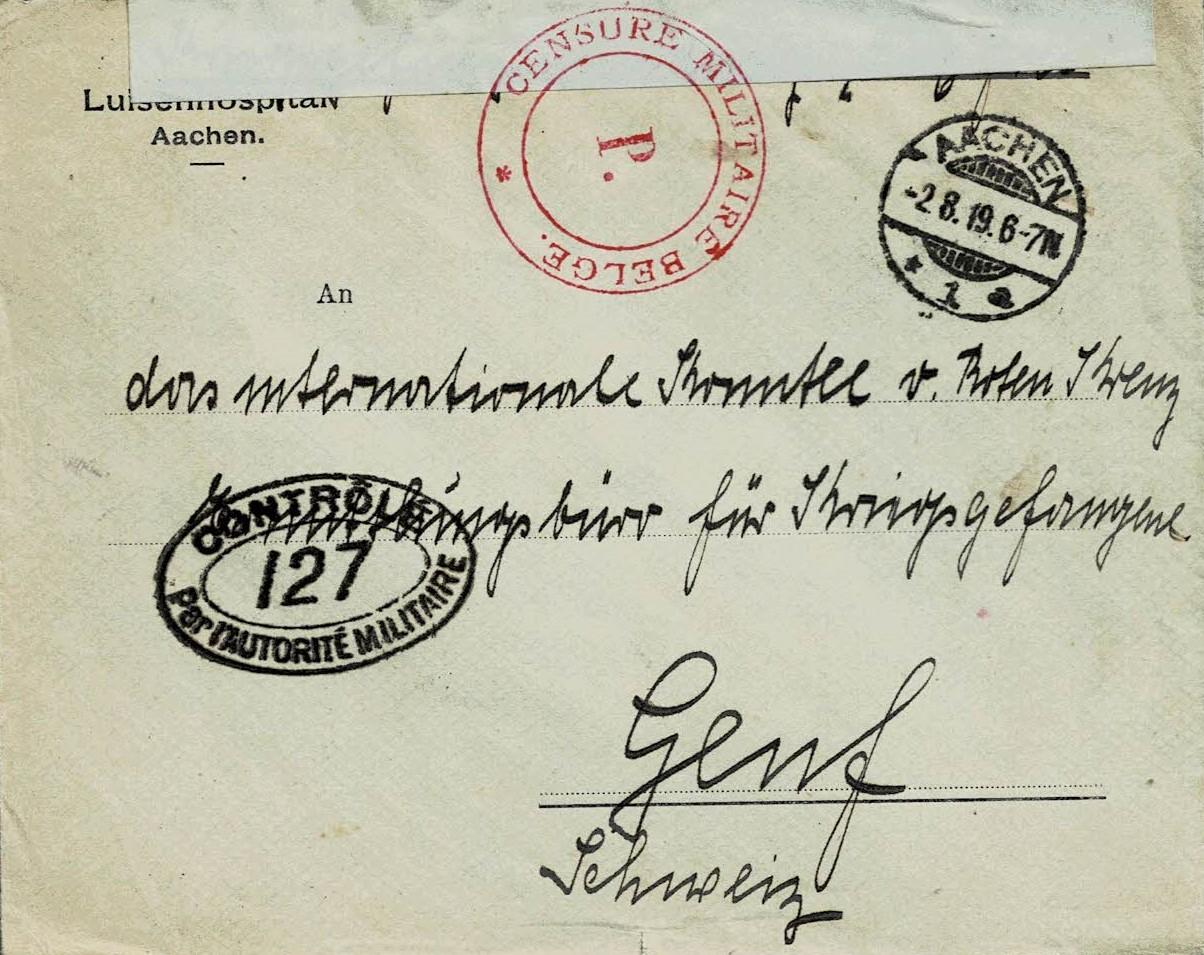 Luisenhospital
Aachen.
CENSURE MILITAIRE BELGE.
P.
AACHEN
-2.8.19.6-7N
* 1 a
An
das internationale Komitee v. Roten Kreuz
Ermittlungsbüro für Kriegsgefangene
CONTRÔLÉ
127
Par l'AUTORITÉ MILITAIRE
Genf
Schweiz